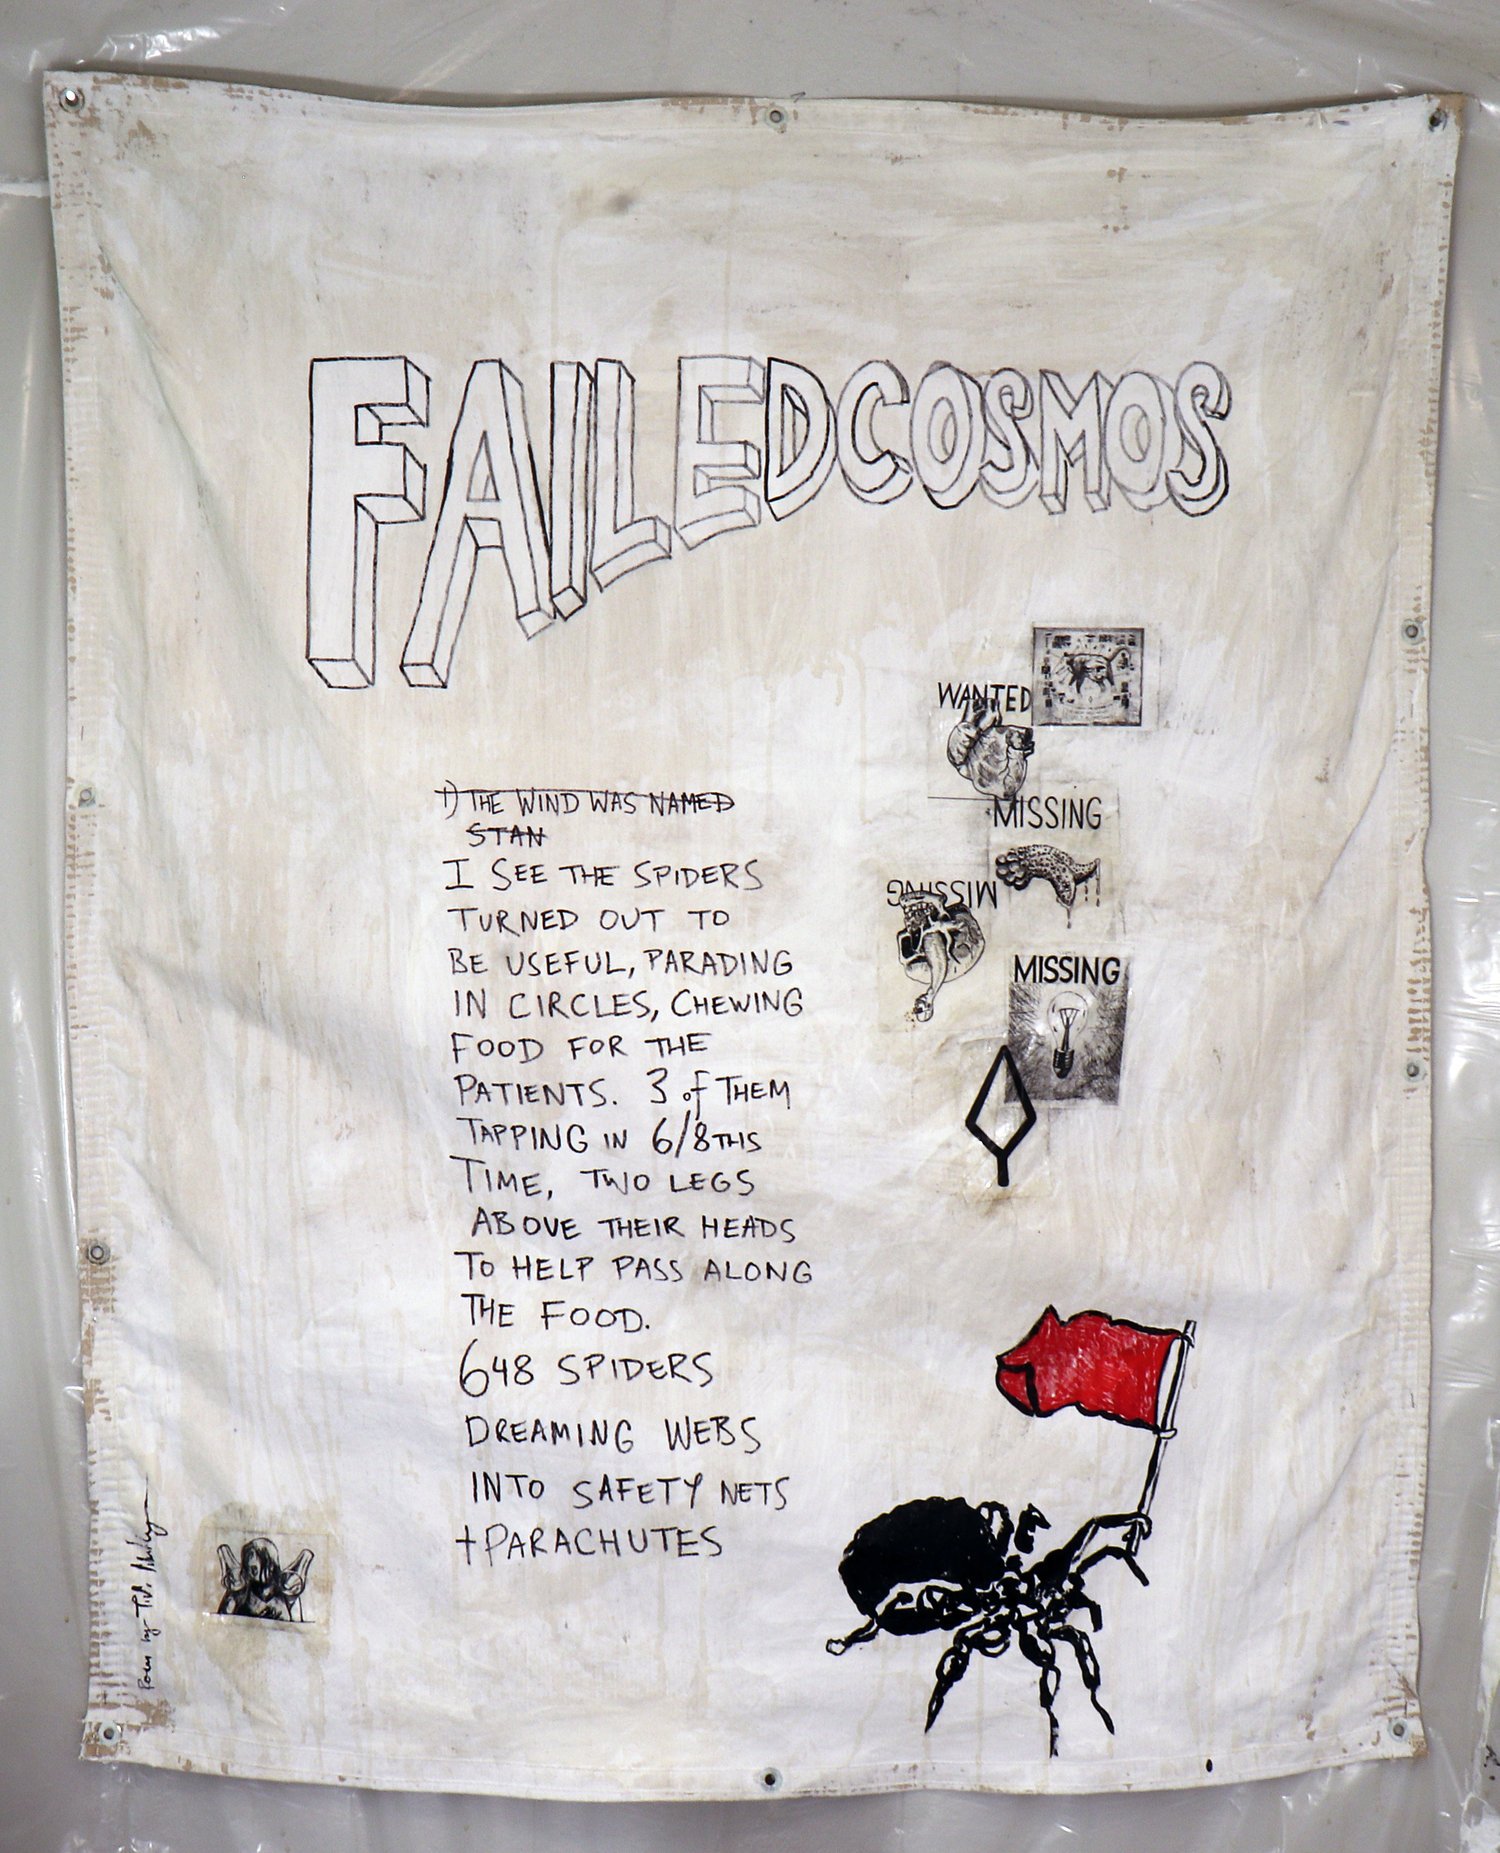 FAILED COSMOS
WANTED
MISSING
MISSING
MISSING
1) THE WIND WAS NAMED
STAN
I SEE THE SPIDERS
TURNED OUT TO
BE USEFUL, PARADING
IN CIRCLES, CHEWING
FOOD FOR THE
PATIENTS. 3 of THEM
TAPPING IN 6/8THS
TIME, TWO LEGS
ABOVE THEIR HEADS
TO HELP PASS ALONG
THE FOOD.
648 SPIDERS
DREAMING WEBS
INTO SAFETY NETS
+ PARACHUTES
Poem by